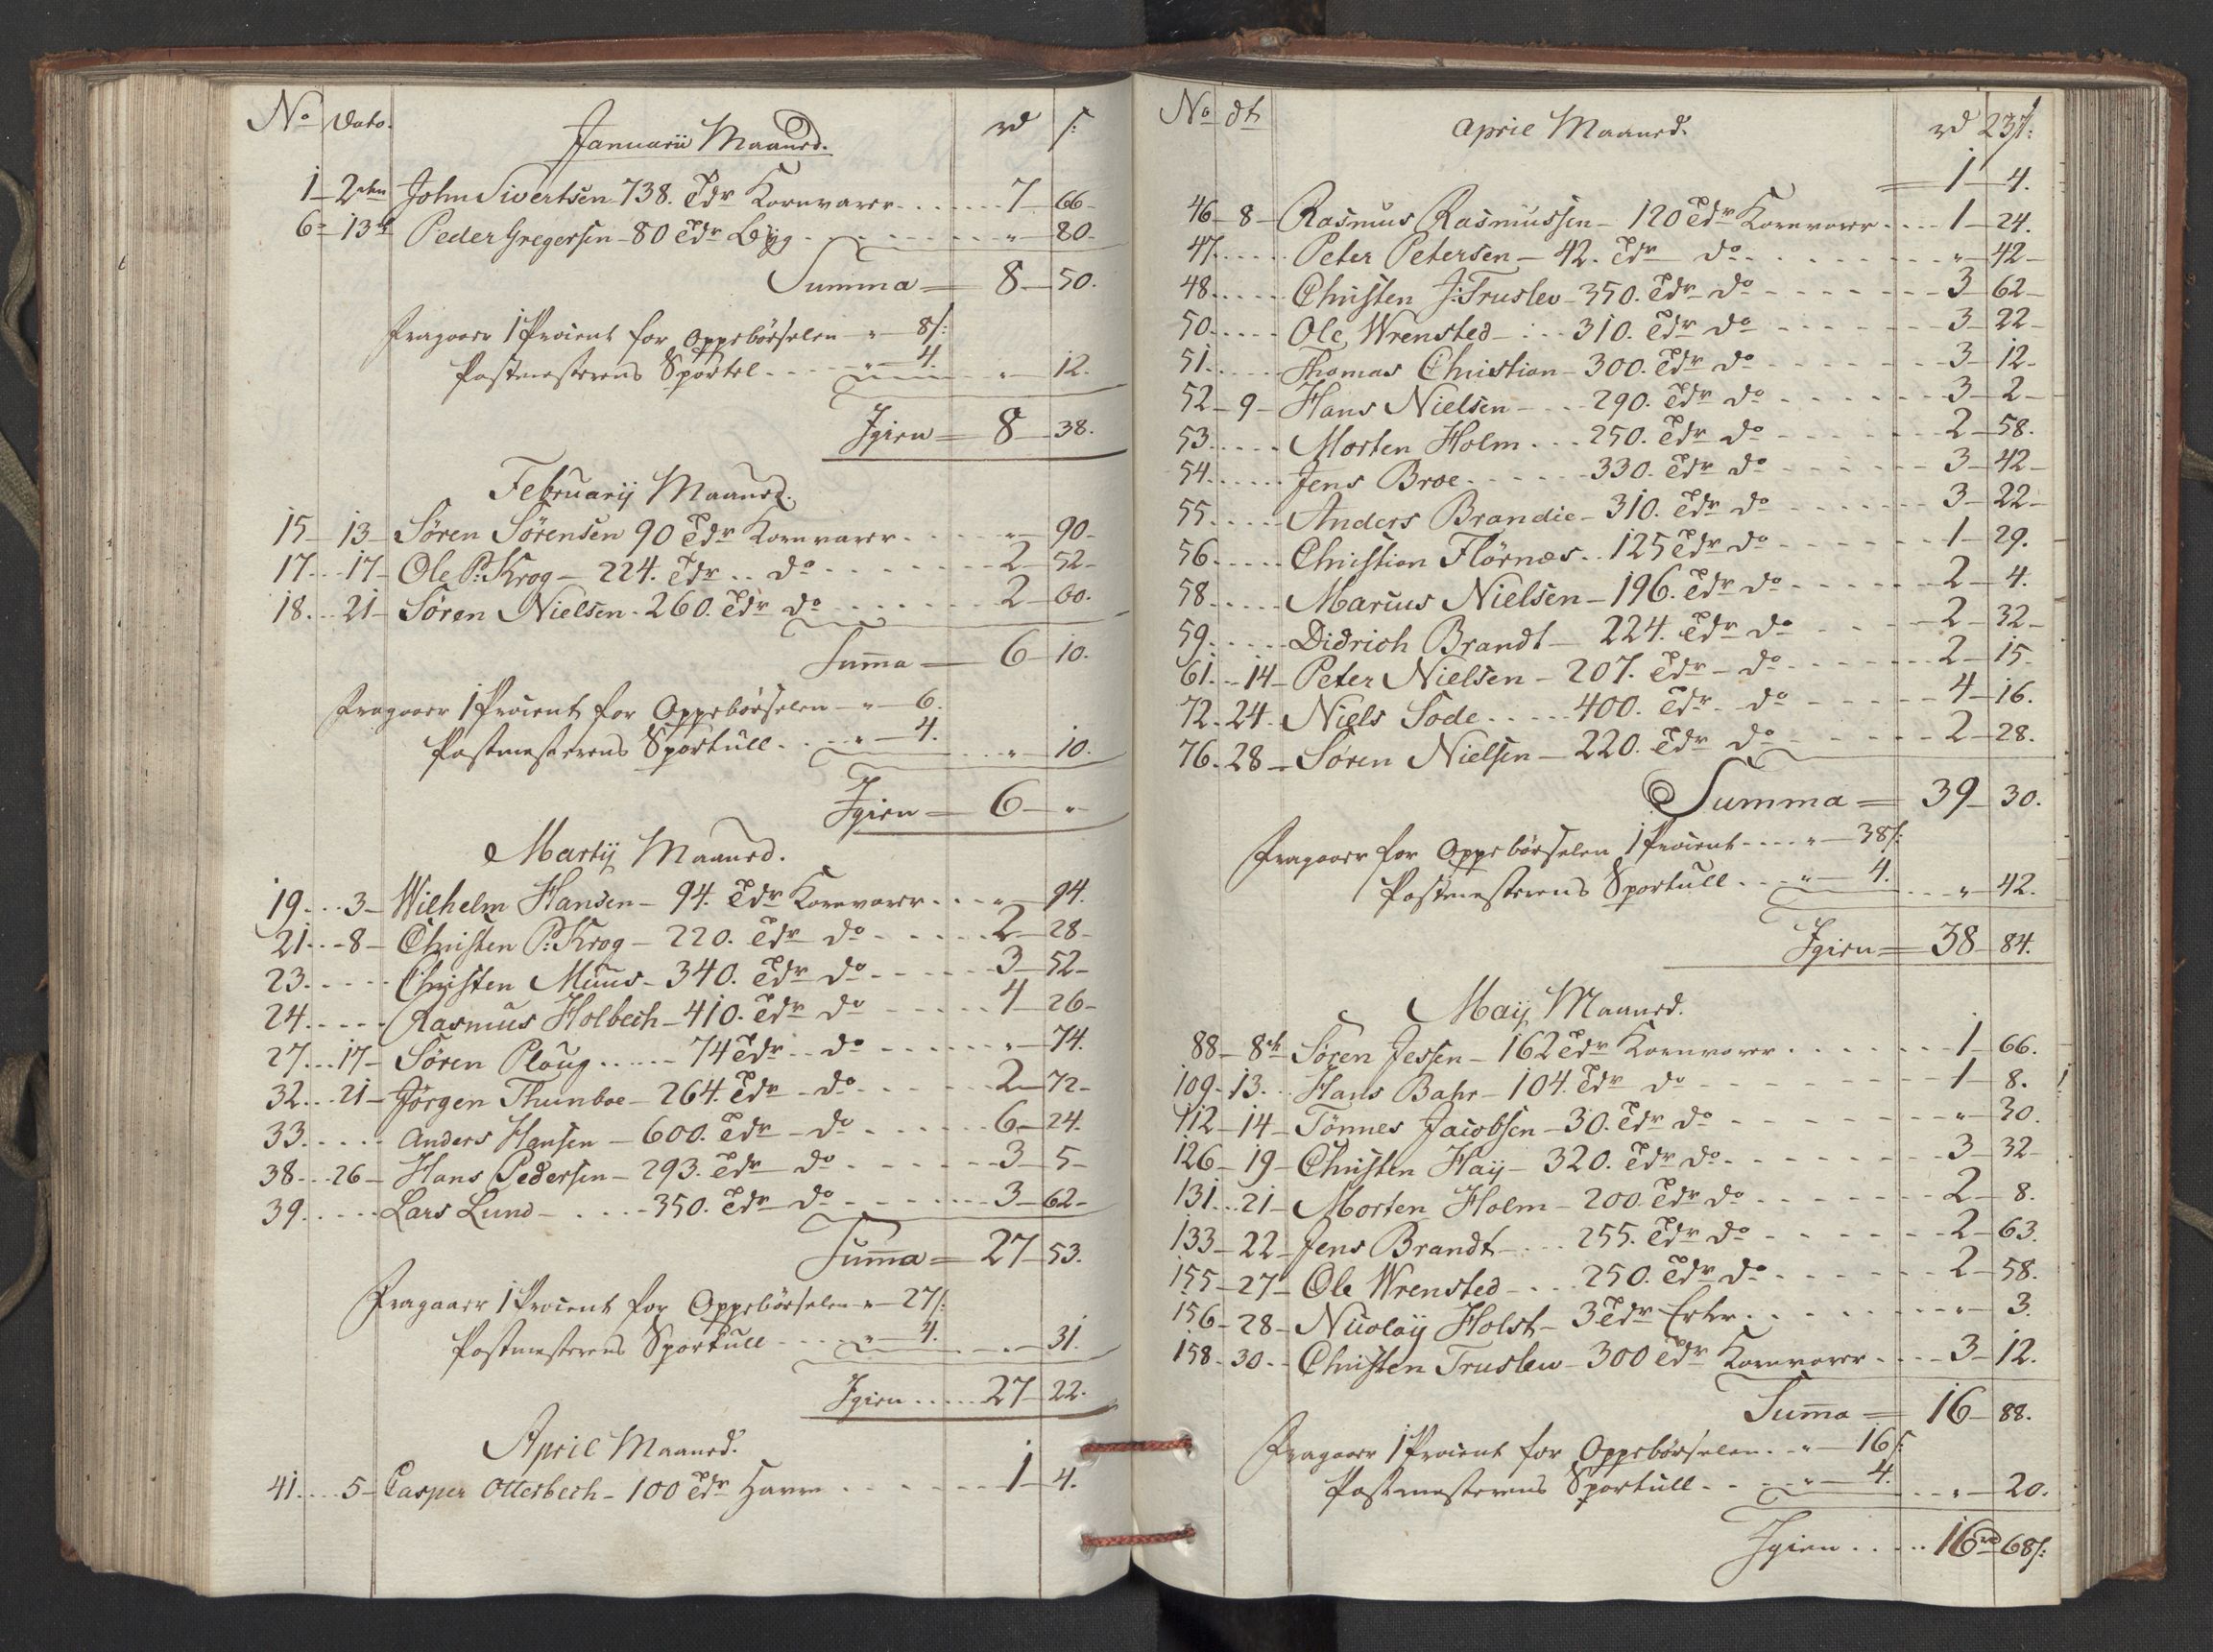 No Dato. Januarii Maaned. rd s:
1 - 2den John Sivertsen 738. Tdr Kornvarer . . . . . 7 - 66 -
6 = 13de Peder Gregersen - 80 Tdr Byg - - - - - " - 80 -
Summa = 8 - 50.
Fragaaer 1 Procent for Oppebørselen - " - 8 s:
Postmesterens Sportel - - - " - 4. " - 12.
Igien = 8 - 38.
Februarij Maaned.
15 - 13 - Søren Sørensen 90 Tdr Kornvarer . . . " - 90 -
17 . . 17 - Ole P: Krog - 224. Tdr . . do . . . . . 2 - 52 -
18 . . 21 - Søren Nielsen - 260. Tdr do . . . . . 2 - 60.
Summa = 6 - 10.
Fragaaer 1 Procent for Oppebørselen - " - 6.
Postmesterens Sportull . . . " - 4. . . " - 10.
Igien = 6 - "
Martij Maaned.
19 . . 3 - Wilhelm Hansen - 94. Tdr Kornvarer . . . " - 94.
21 . . 8 - Christen P: Krog - 220. Tdr do - - - - - 2 - 28 -
23 . . . . . Christen Muus - 340. Tdr do - - - - - 3 - 52 -
24 . . . . . Rasmus Holbech - 410. Tdr do - - - - - 4 - 26 -
27 . . 17 - Søren Ploug . . . . . 74 Tdr . . do - - - - - " - 74.
32 . . 21 - Jørgen Thunboe - 264. Tdr - do - - - - 2 - 72 -
33 . . . . . Anders Hansen - 600. Tdr - do - - - - - 6 - 24.
38 . . 26 - Hans Pedersen - 293. Tdr do - - - - - 3 - 5 -
39 . . . . . Lars Lund - . . . . 350. Tdr do - - - - - 3 - 62 -
Summa = 27 - 53.
Fragaaer 1 Procent for Oppebørselen - " - 27 s:
Postmesterens Sportull - - - " - 4. - - " - 31.
Igien . . . . . 27 - 22.
April Maaned.
41 . . . 5 - Casper Otterbech - 100 Tdr Havre . . . . . 1 - 4.
No dt April Maaned. rd 237 s:
= 1 - 4.
46 - 8 - Rasmus Rasmussen - 120 Tdr Kornvarer . . . . 1 - 24.
47 . . . . . Peter Petersen - 42. Tdr do - - - - - " - 42 -
48 . . . . . Christen J: Truslev - 350. Tdr do - - - - - 3 - 62 -
50 . . . . . Ole Wrensted - . . . 310. Tdr do - - - - - 3 - 22 -
51 . . . . . Thomas Christian - 300. Tdr do - - - - - 3 - 12 -
52 - 9 - Hans Nielsen - . . 290. Tdr do - - - - - 3 - 2 -
53 . . . . . Morten Holm . . . 250. Tdr do - - - - - 2 - 58.
54 . . . . . Jens Broe . . . . . 330. Tdr do - - - - - 3 - 42 -
55 . . . . . Anders Brandie - 310. Tdr do - - - - - 3 - 22 -
56 . . . . . Christian Flörnæs . . 125 Tdr do - - - - - 1 - 29.
58 . . . . . Marius Nielsen - 196. Tdr do - - - - - 2 - 4.
59 . . . . . Didrich Brandt - 224. Tdr do - - - - - 2 - 32 -
61 . . 14 - Peter Nielsen - 207. Tdr - do - - - - - 2 - 15 -
72 . 24 . Niels Sode . . . . . 400. Tdr - do - - - - - 4 - 16.
76 . 28 - Søren Nielsen - 220. Tdr do - - - - - 2 - 28.
Summa = 39 - 30.
Fragaaer for Oppebørselen 1 Procent - - - " - 38 s:
Postmesterens Sportull . . . " - 4. . . " - 42.
Igien = 38 - 84.
Maij Maaned.
88 - 8de Søren Jessen - 162 Tdr Kornvarer . . . . . 1 - 66.
109 - 13 . . Hans Bahr - 104. Tdr do - - - - - 1 - 8.
112 - 14 - Tønnes Jacobsen - 30. Tdr do - - - - - " - 30.
126 - 19 - Christen Haÿ - 320. Tdr do - - - - - 3 - 32 -
131 . . 21 - Morten Holm - 200. Tdr do - - - - - 2 - 8.
133 - 22 - Jens Brandt - . . . 255. Tdr do - - - - - 2 - 63.
155 - 27 - Ole Wrensted - . . . 250. Tdr do - - - - - 2 - 58.
156 - 28 - Nicolaÿ Holst - 3 Tdr Erter . . . . . " - 3.
158 - 30 - Christen Truslew - 300 Tdr Kornvarer . . . . 3 - 12.
Summa = 16 - 88.
Fragaaer 1 Procent for Oppebørselen . . " - 16 s:
Postmesterens Sportull - - " - 4. . . " - 20.
Igien . . . . . 16 rd 68 s: